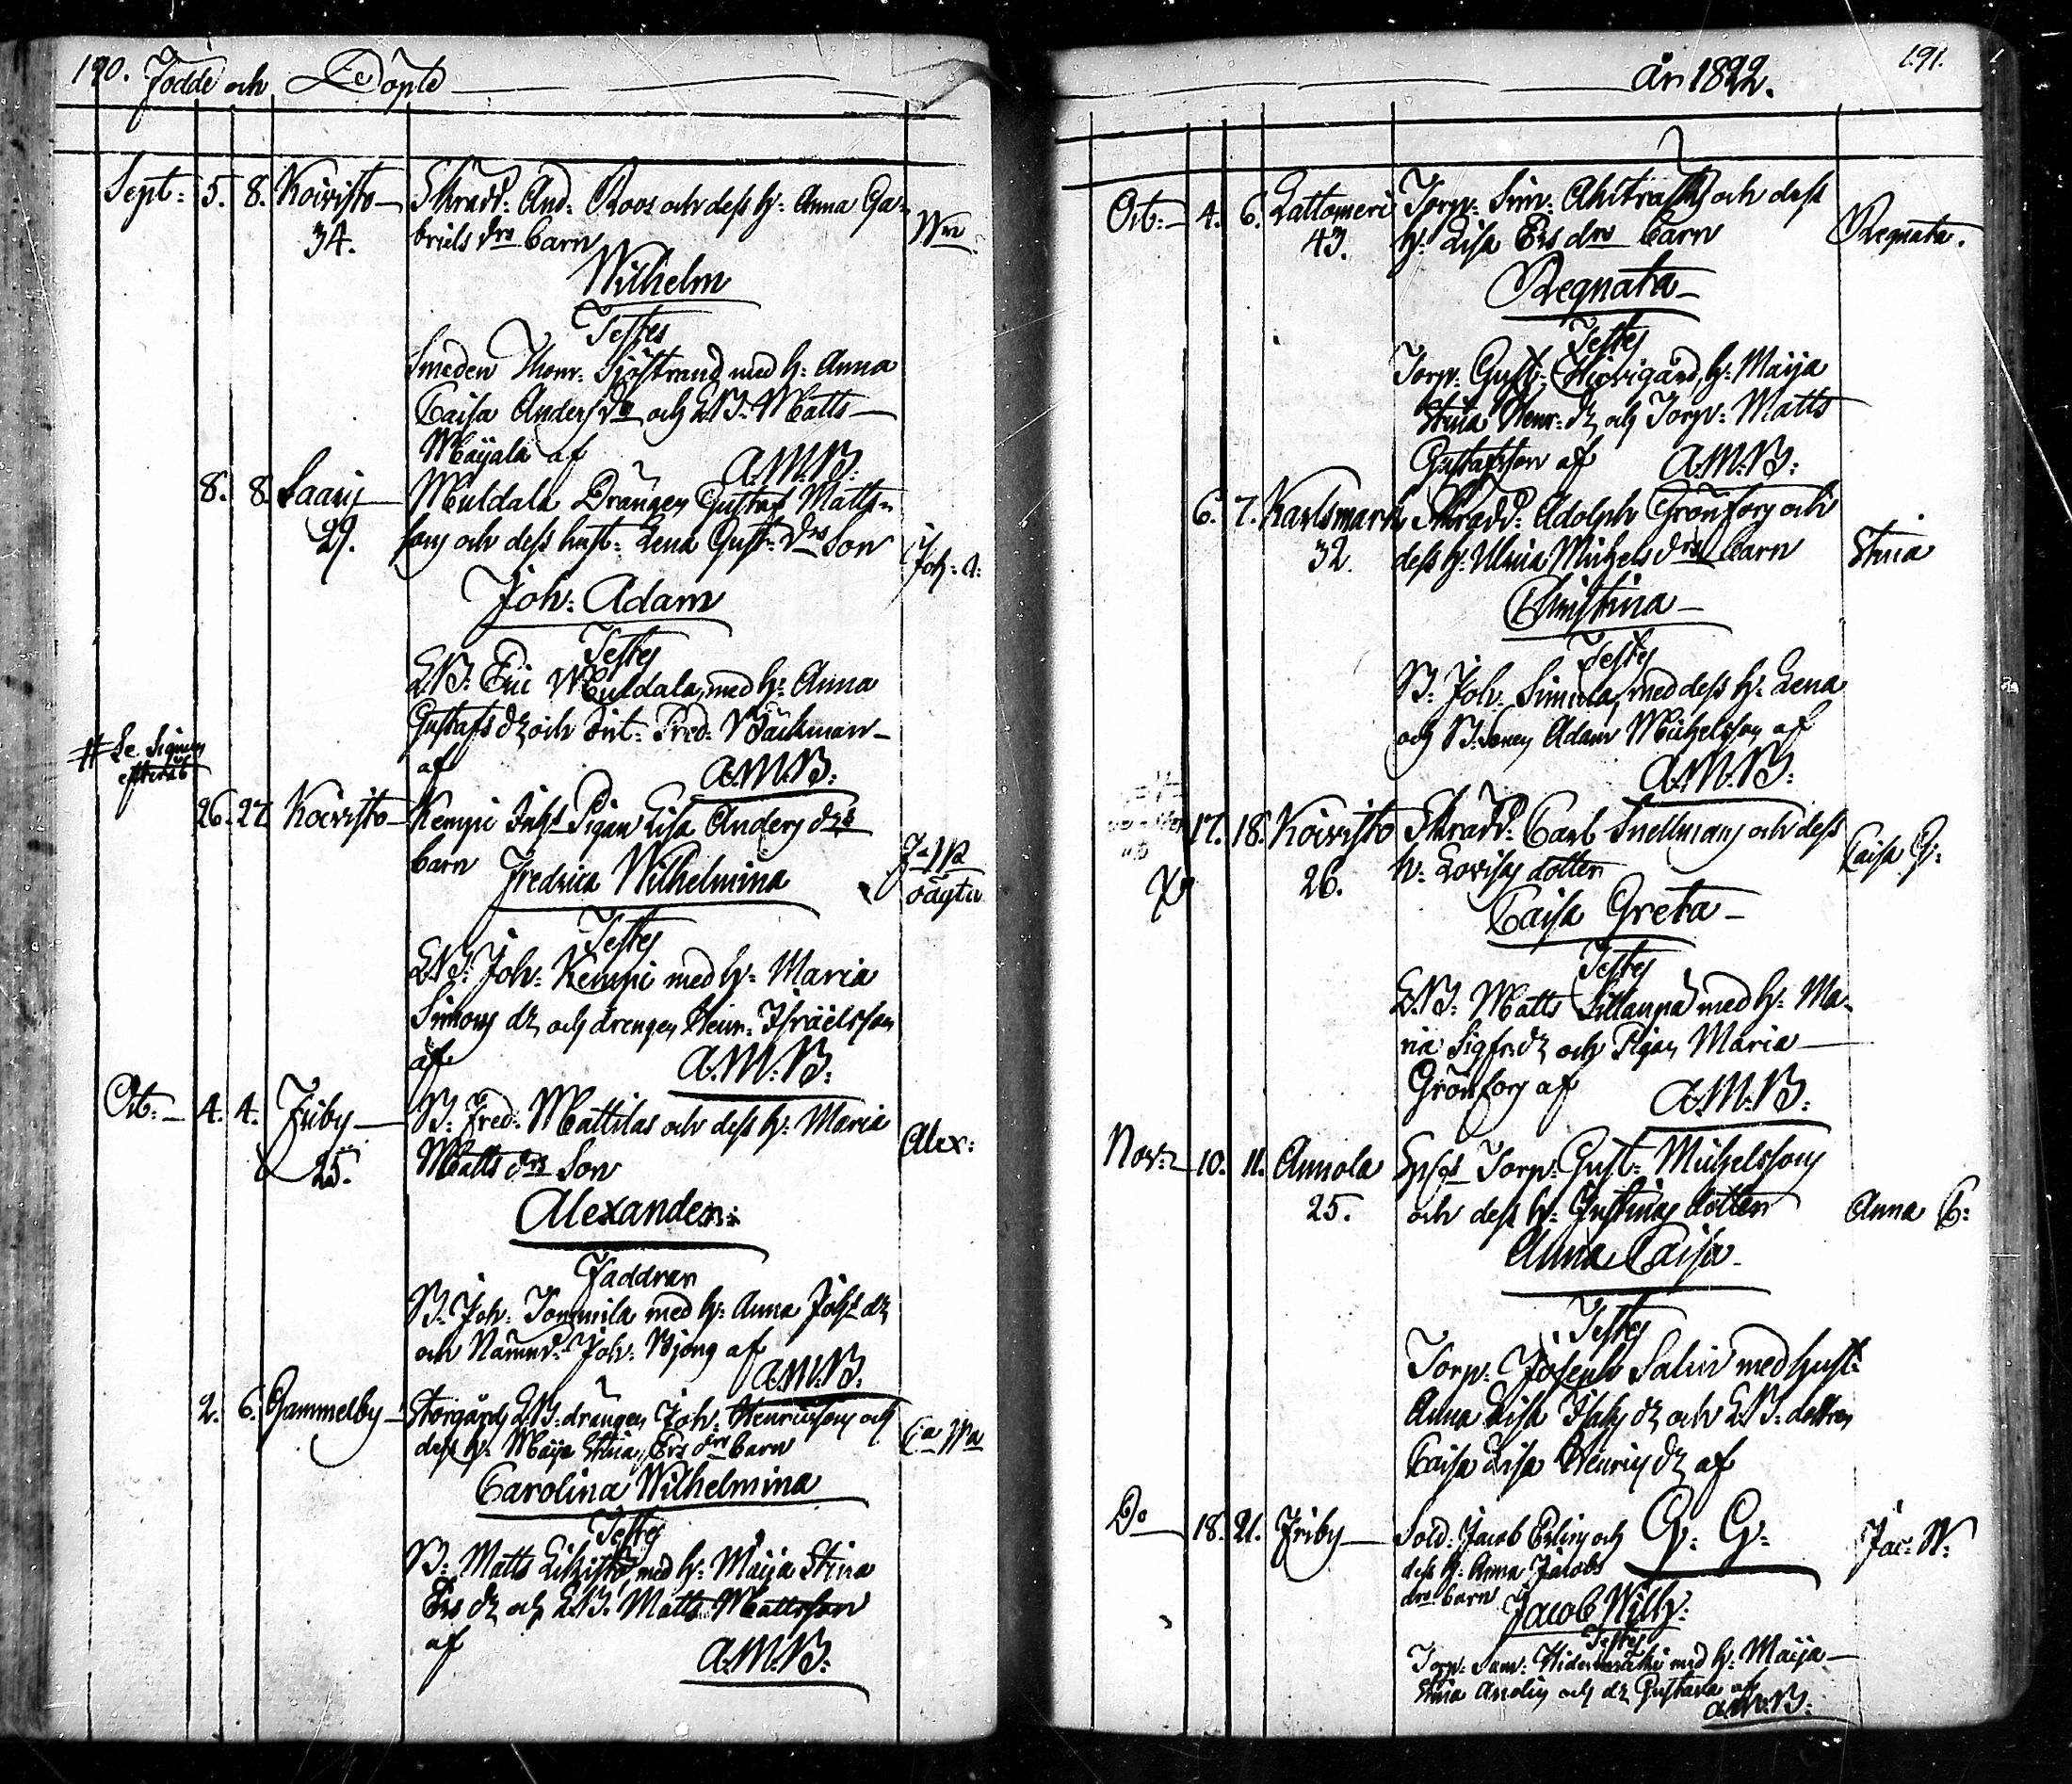 190. Födde och Döpte
Sept: 5. 8. Koivisto 34. Skradd: And: Roos och dess h: Anna Ga-
briels drs barn Wm
Wilhelm
Testes
Smeden Thom: Sjöstrand med h: Anna
Caisa Anders dr och LB: Matts
Mäyälä af A.M.B:
8. 8. Laaris 29. Muldala Drängen Gustaf Matts-
sons och dess hust: Lena Gust: drs Son Joh: A:
Joh: Adam
Testes
LB: Eric Muldala, med h: Anna
Gustafs dr och Fred: Bäckman
af A.M.B:
# Se Signum
26. 27. Koivisto Kempi Inhs Pigan Lisa Anders drs
barn Fredrica Wilhelmina oägta
Testes
LB: Joh: Kempi med h: Maria
Simons dr och drengen Henr: Israelsson
af A.M.B:
Oct: 4. 4. Friby 25. B: Fred: Mattilas och dess h: Maria
Matts drs Son Alex:
Alexander:
Faddrar
B: Joh: Tommila med h: Anna Johs dr
och Nämnd: Joh: Björg af
A.M.B:
2. 6. Gammelby Storgårds LB: drängen Joh: Henricssons och
dess h: Maija Stina Ers drs barn Ca Wa
Carolina Wilhelmina
Testes
B: Matts med h: Maija Stina
Ers dr och LB: Matts Mattsson
af A.M.B:
År 1822. 191.
Oct: 4. 6. Lattomeri 43. Torp: Sim: och dess
h: Lisa Ers drs barn Regnata.
Regnata
Testes
Torp: Gust: h: Maija
Stina Henr: dr och Torp: Matts
Gustafsson af A.M.B:
6. 7. Karlsmark 32. Skradd: Adolph Grönfors och
dess h: Ulrica Michels drs barn Stina
Christina
Testes
B: Joh: Simula, med dess h: Lena
och B: Sonen Adam Michelsson af
A.M.B:
17. 18. Koivisto 26. Skradd: Carl Snellmans och dess
h: Lovisas dotter Caisa G:
Caisa Greta
Testes
LB: Matts Sillanpä med h: Ma-
ria Sigfrs dr och Pigan Maria
Grönfors af A.M.B:
Nov: 10. 11. Annola 25. Torp: Gust: Michelssons
och dess h: Justinas dotter Anna C:
Anna Caisa
Testes
Torp: Joseph Salin med hust:
Anna Lisa Isaks dr och LB: dottren
Caisa Lisa Henrics dr af
G: G:
Do 18. 21. Friby Sold: Jacob och
dess h: Anna Jacobs
drs barn Jac: W:
Jacob Wilh:
Testes
Torp: Sam: med h: Maija
Stina och dr Gustava af
A.M.B: